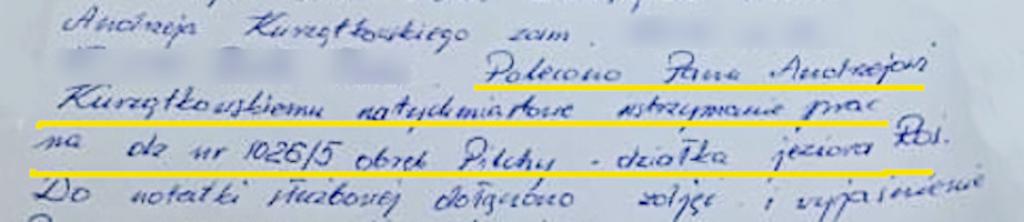 Andrzeja Kurzątkowskiego zam.
Polecono Panu Andrzejowi
Kurzątkowskiemu natychmiastowe wstrzymanie prac
na dz nr 1026/5 obręb Pilchy - działka jeziora Roś.
Do notatki służbowej dołączono zdjęć i wyjaśnienie